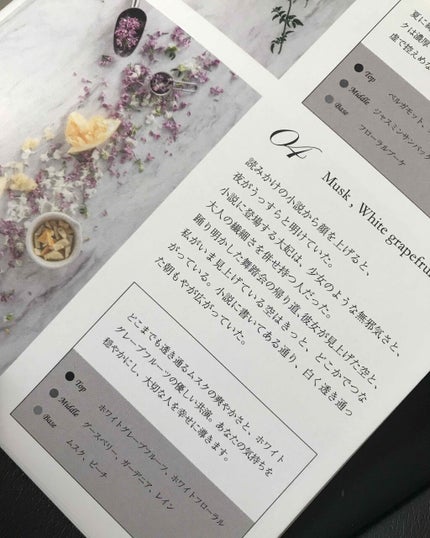 夏に
クは濃厚
虚で控えめな
Top
ベルガモット、
Middle
ジャスミンサンバック
Base
フローラルブーケ
04
Musk , White grapefrui
読みかけの小説から顔を上げると、
夜がうっすらと明けていた。
小説に登場する大妃は、少女のような無邪気さと、
大人の繊細さを併せ持つ人だった。
踊り明かした舞踏会の帰り道、彼女が見上げた空と、
私がいま見上げている空はきっと、どこかでつな
がっている。小説に書いてある通り、白く透き通っ
た朝もやが広がっていた。
どこまでも透き通るムスクの爽やかさと、ホワイト
グレープフルーツの優しい共演。あなたの気持ちを
穏やかにし、大切な人を幸せに導きます。
Top
ホワイトグレープフルーツ、ホワイトフローラル
Middle
グースベリー、ガーデニア、レイン
Base
ムスク、ピーチ